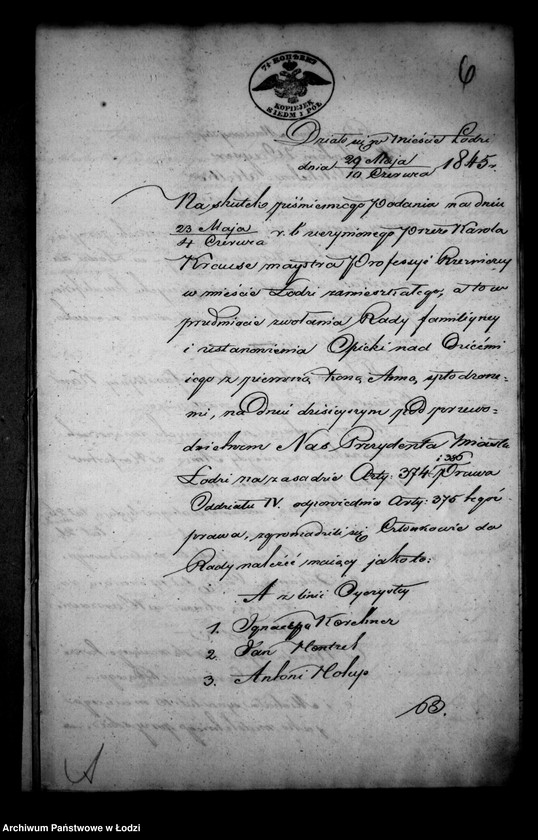 6
7½ КОПѢЕКЪ
KOPIEJEK
SIEDM I PÓŁ
Działo się w Mieście Łodzi
dnia 29 Maja / 10 Czerwca 1845.
Na skutek piśmiennego Podania na dniu
23 Maja / 4 Czerwca r. b. uczynionego Przez Karola
Krause maystra Professyi
w mieście Łodzi zamieszkałego, a to w
przedmiocie zwołania Rady familijney
i ustanowienia Opieki nad Dziećmi
iego z pierwszą żoną Anną spłodzone-
mi, na dniu dzisieyszym pod przewo-
dnictwem Nas Prezydenta Miasta
Łodzi na zasadzie Arty: 374 i 386 Prawa
Oddziału IV. odpowiednio Arty: 375 tegoż
prawa, zgromadzili się Członkowie do
Rady należeć maiący jakoto:
A z linii Oyczystey
1. Ignacy Korchner
2. Jan Hentzel
3. Antoni Holup
B.
Archiwum Państwowe w Łodzi